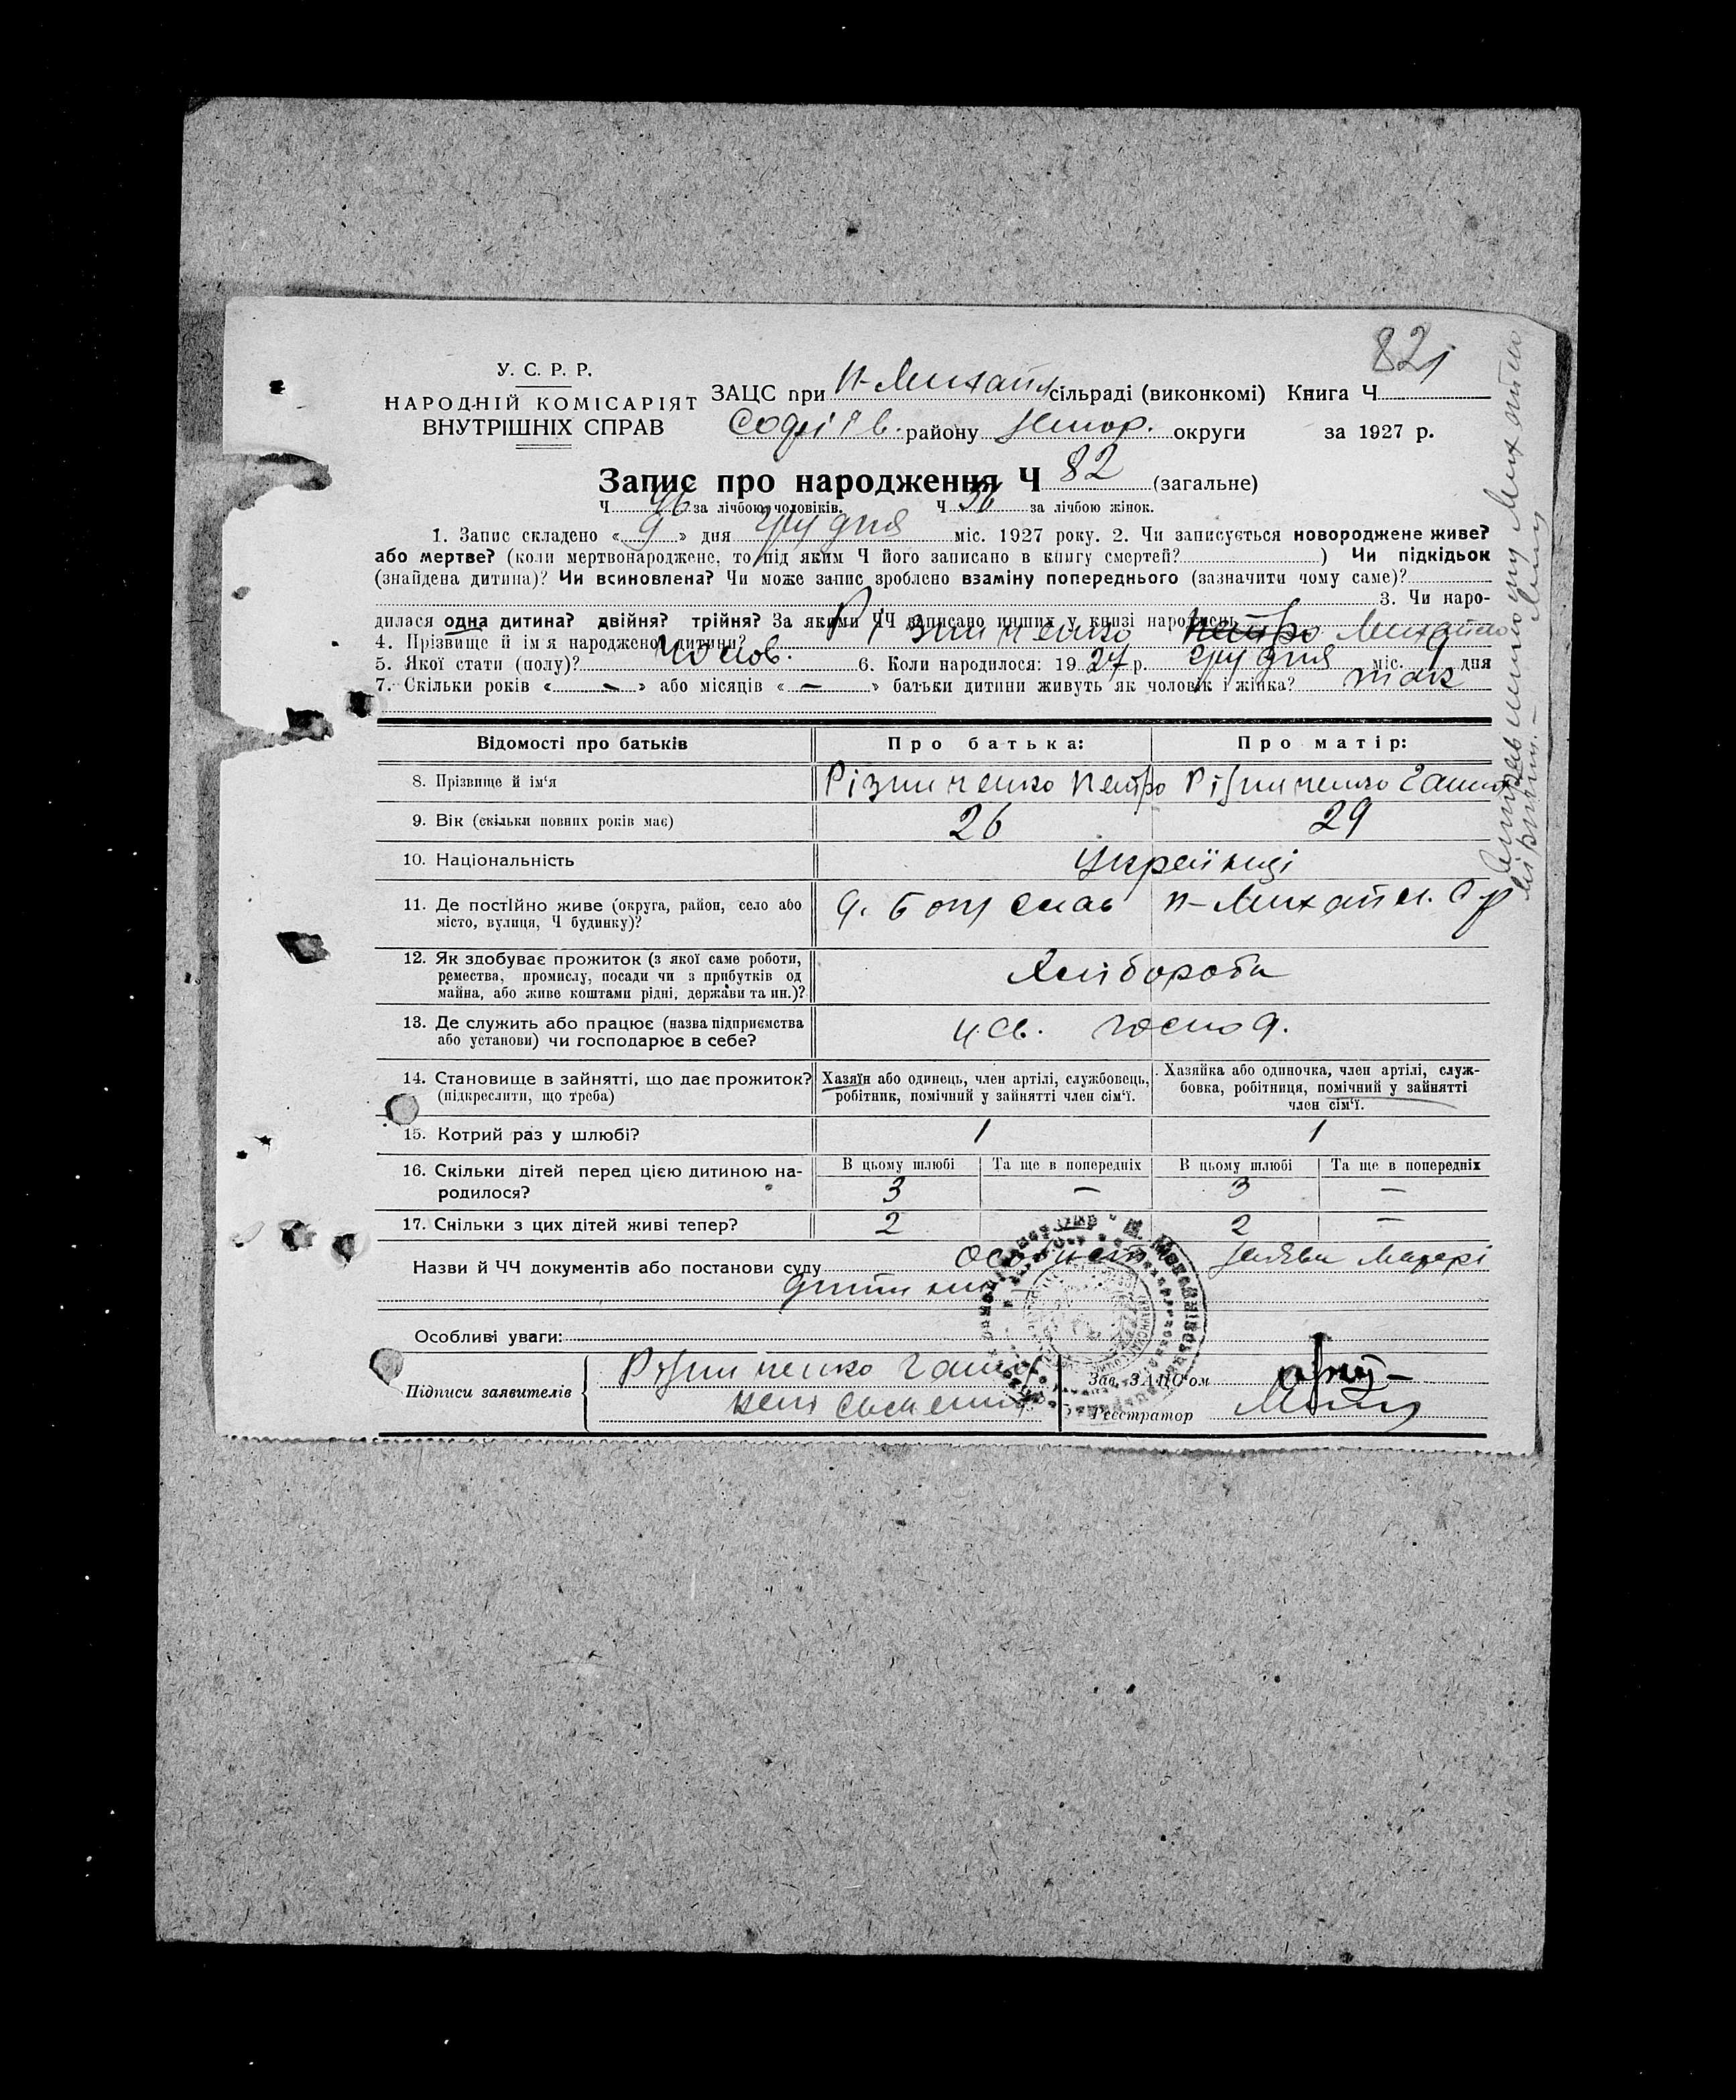 82
У. С. Р. Р.
НАРОДНІЙ КОМІСАРІЯТ
ВНУТРІШНІХ СПРАВ
ЗАЦС при Н-Михайл сільраді (виконкомі) Книга Ч
Софіїв. району округи за 1927 р.
Запис про народження Ч 82 (загальне)
Ч 46 за лічбою чоловіків. Ч 36 за лічбою жінок.
1. Запис складено «9» дня грудня міс. 1927 року. 2. Чи записується новороджене живе?
або мертве? (коли мертвонароджене, то під яким Ч його записано в книгу смертей?) Чи підкідьок
(знайдена дитина)? Чи всиновлена? Чи може запис зроблено взаміну попереднього (зазначити чому саме)?
3. Чи наро-
дилася одна дитина? двійня? трійня? За якими ЧЧ записано инших у книзі народжень
4. Прізвище й ім'я народженої дитини? Різниченко Петро Михайло
5. Якої стати (полу)? чолов. 6. Коли народилося: 1927 р. грудня міс. 9 дня
7. Скільки років «—» або місяців «—» батьки дитини живуть як чоловік і жінка? так
Відомості про батьків
Про батька:
Про матір:
8. Прізвище й ім'я Різниченко Петро Різниченко Ганна
9. Вік (скільки повних років має) 26 29
10. Національність Українці
11. Де постійно живе (округа, район, село або
місто, вулиця, Ч будинку)?
д. Богуслав Н-Михайл. с-р
12. Як здобуває прожиток (з якої саме роботи,
ремества, промислу, посади чи з прибутків од
майна, або живе коштами рідні, держави та ин.)?
Хлібороби
13. Де служить або працює (назва підприємства
або установи) чи господарює в себе?
у св. господ.
14. Становище в зайнятті, що дає прожиток?
(підкреслити, що треба)
Хазяїн або одинець, член артілі, службовець,
робітник, помічний у зайнятті член сім'ї.
Хазяйка або одиночка, член артілі, служ-
бовка, робітниця, помічний у зайнятті
член сім'ї.
15. Котрий раз у шлюбі? 1 1
16. Скільки дітей перед цією дитиною на-
родилося?
В цьому шлюбі Та ще в попередніх В цьому шлюбі Та ще в попередніх
3 — 3 —
17. Скільки з цих дітей живі тепер? 2 2 —
Назви й ЧЧ документів або постанови суду Особиста заява Матері
дитини
Особливі уваги:
Підписи заявителів
Різниченко Ганна
неписьменна
Зав. ЗАЦС'ом
Реєстратор
Виправленому Михайло
вірити.